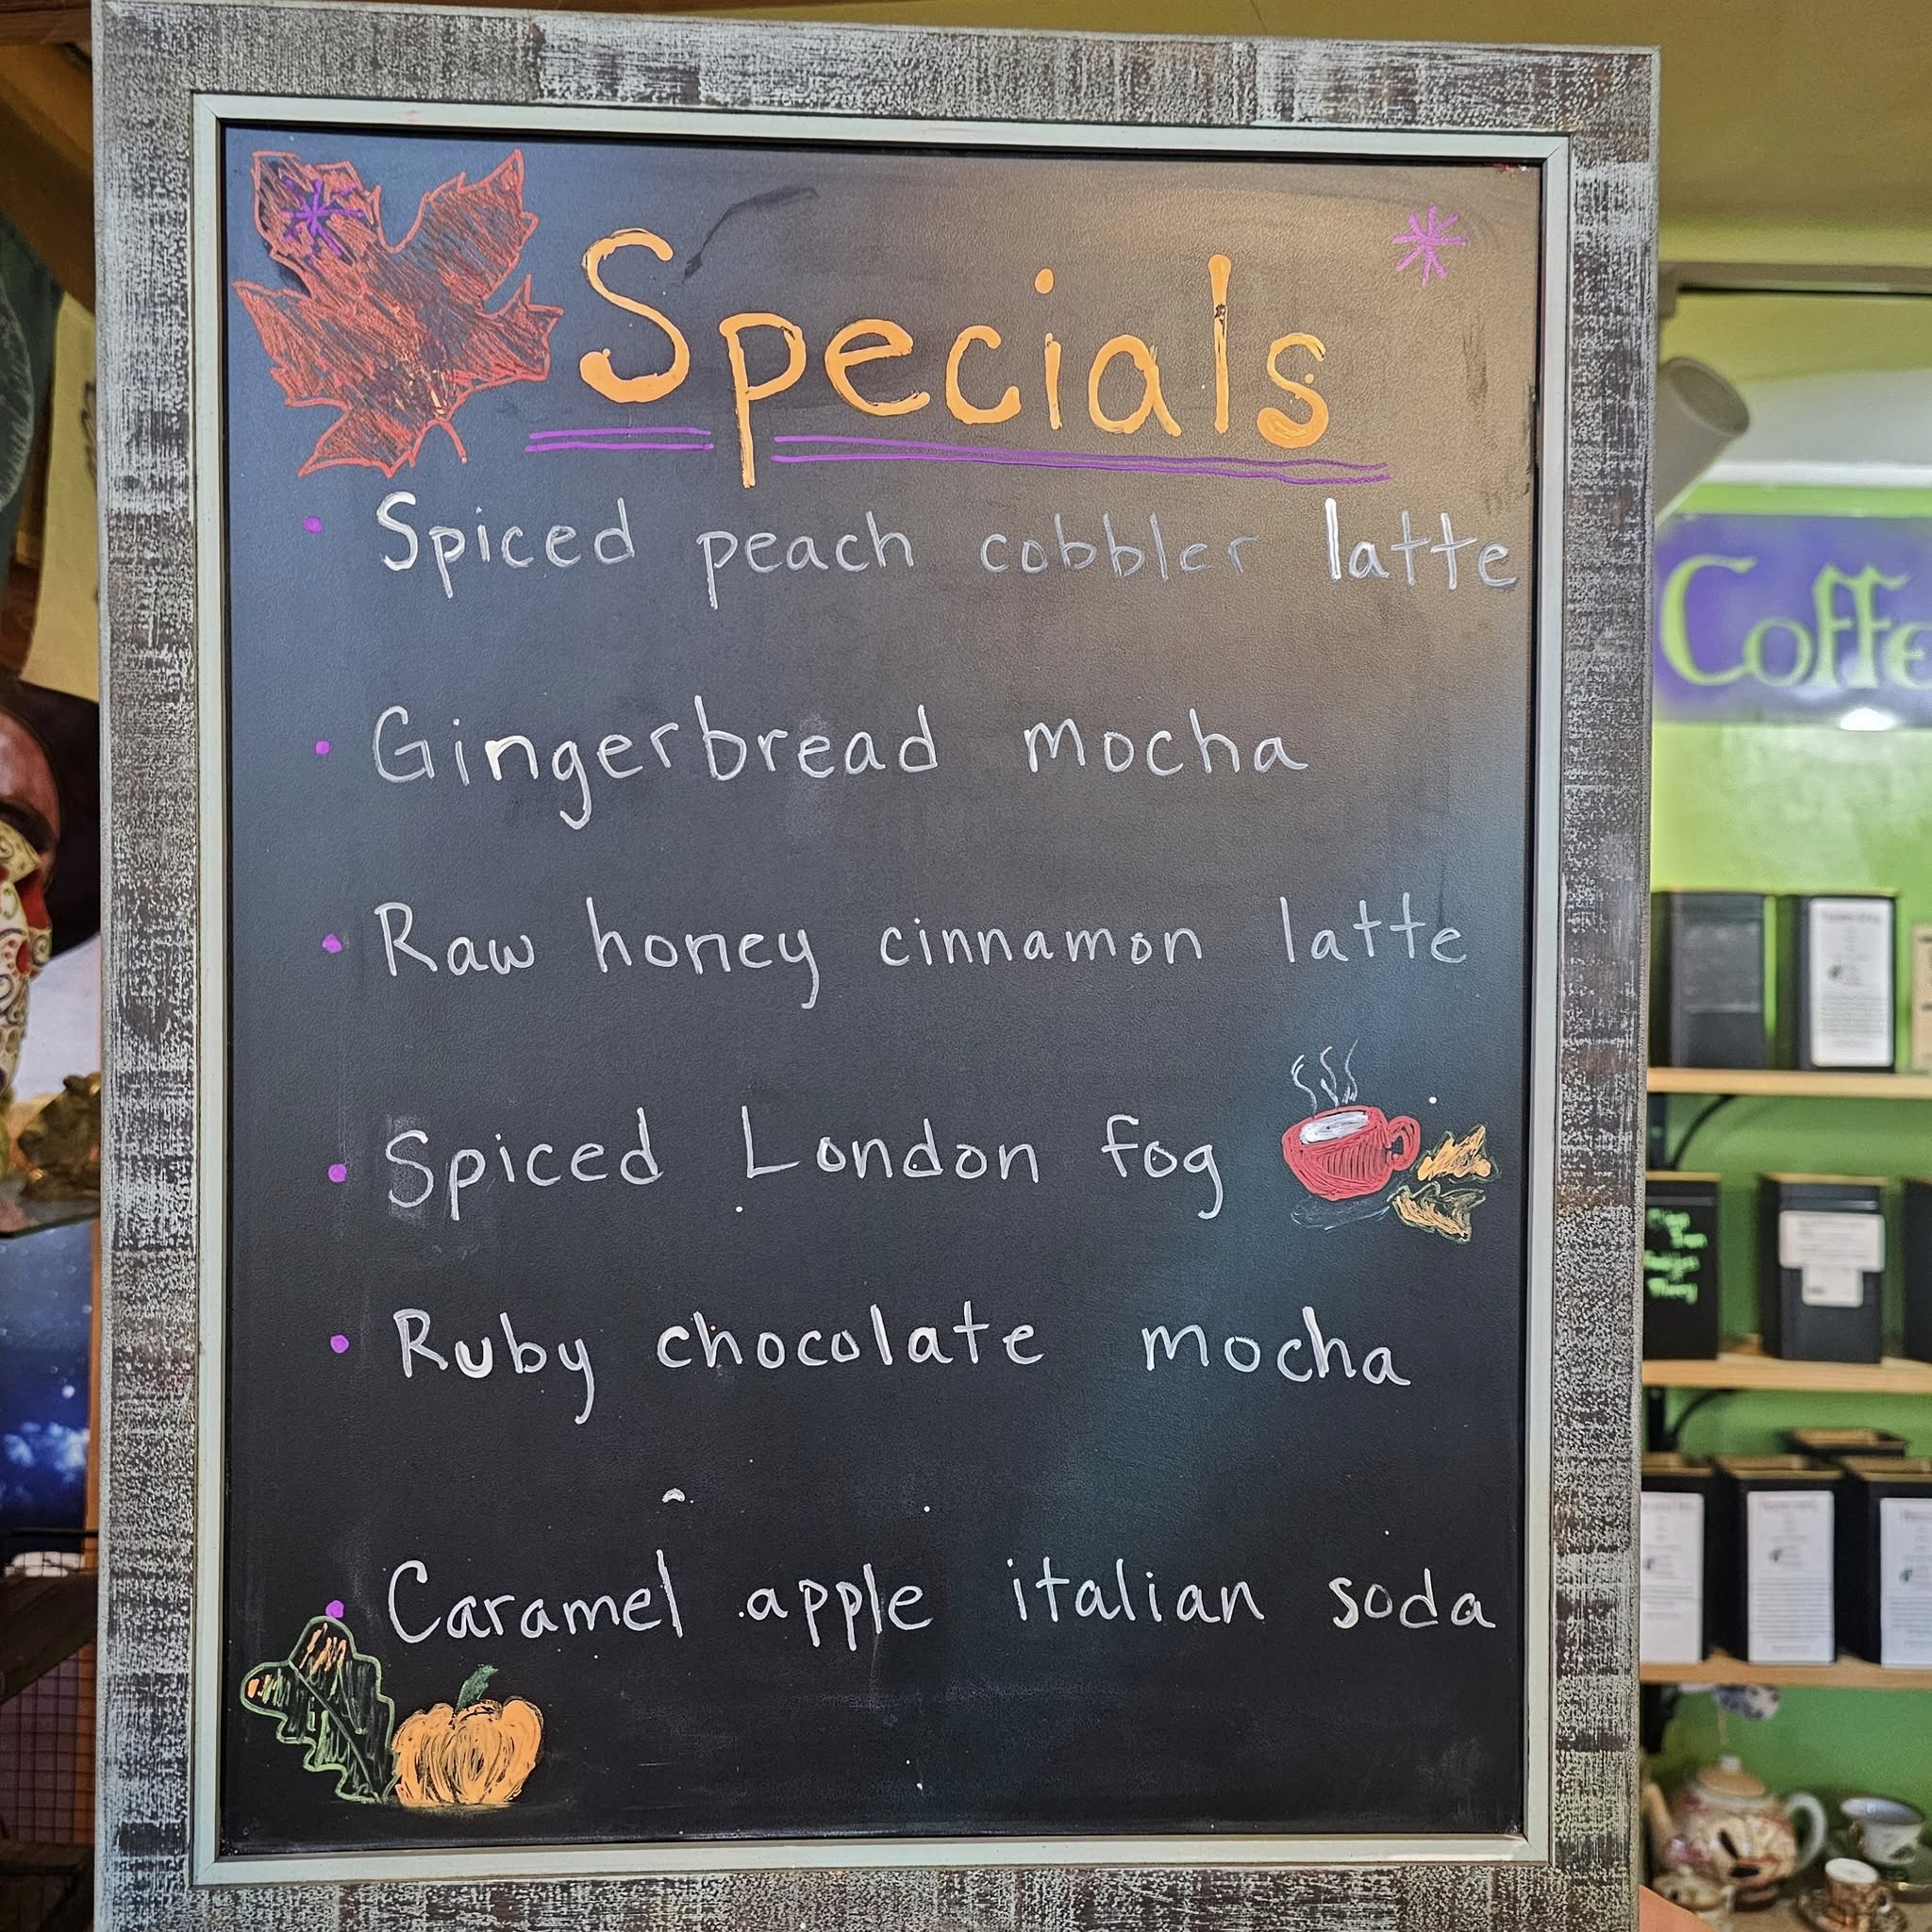 Specials
Spiced peach cobbler latte
Gingerbread mocha
Raw honey cinnamon latte
Spiced London fog
Ruby chocolate mocha
Caramel apple italian soda
Coffe